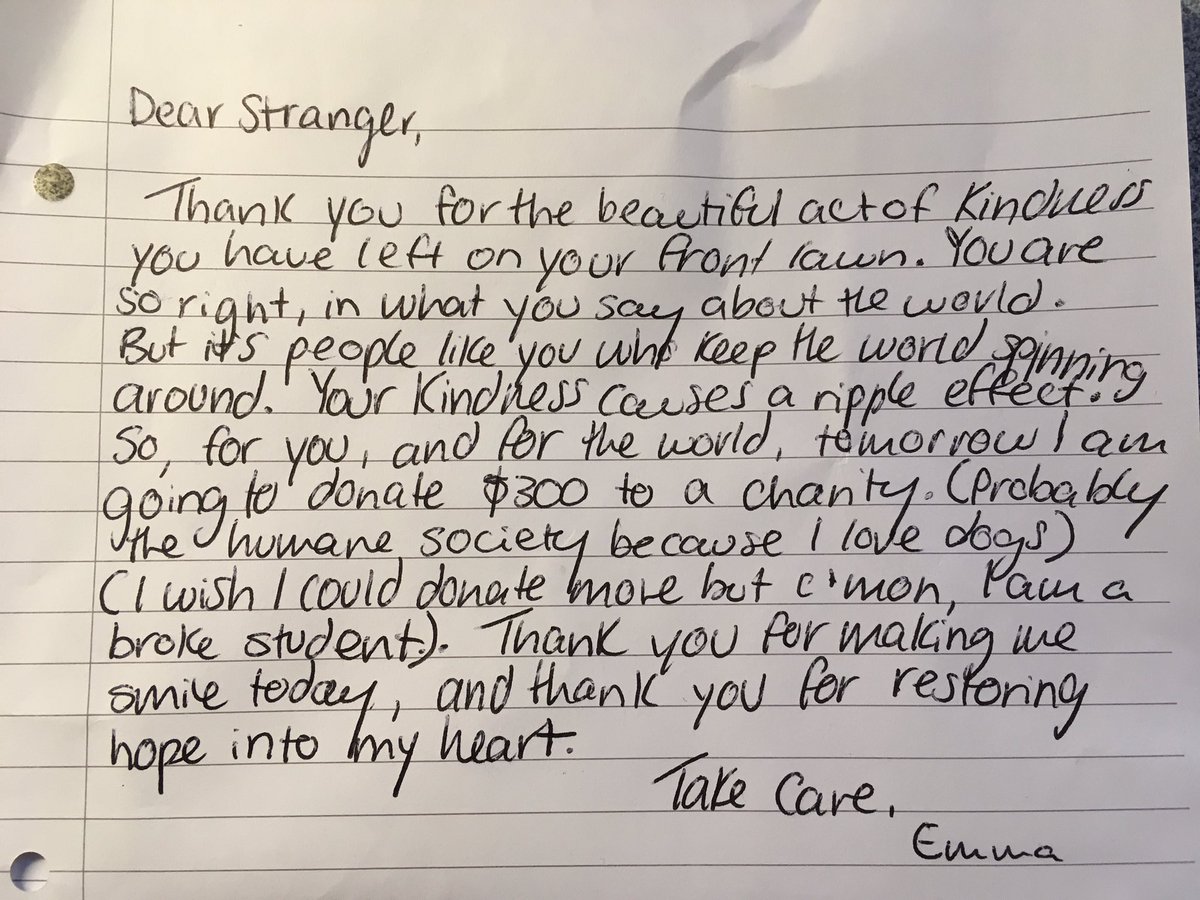 Dear Stranger,
Thank you for the beautiful act of Kindness
you have left on your front lawn. You are
so right, in what you say about the world.
But it's people like you who keep the world spinning
around. Your Kindness causes a ripple effect.
So, for you, and for the world, tomorrow I am
going to donate $300 to a charity. (Probably
the humane society because I love dogs)
(I wish I could donate more but c'mon, I am a
broke student.). Thank you for making me
smile today, and thank you for restoring
hope into my heart.
Take Care,
Emma